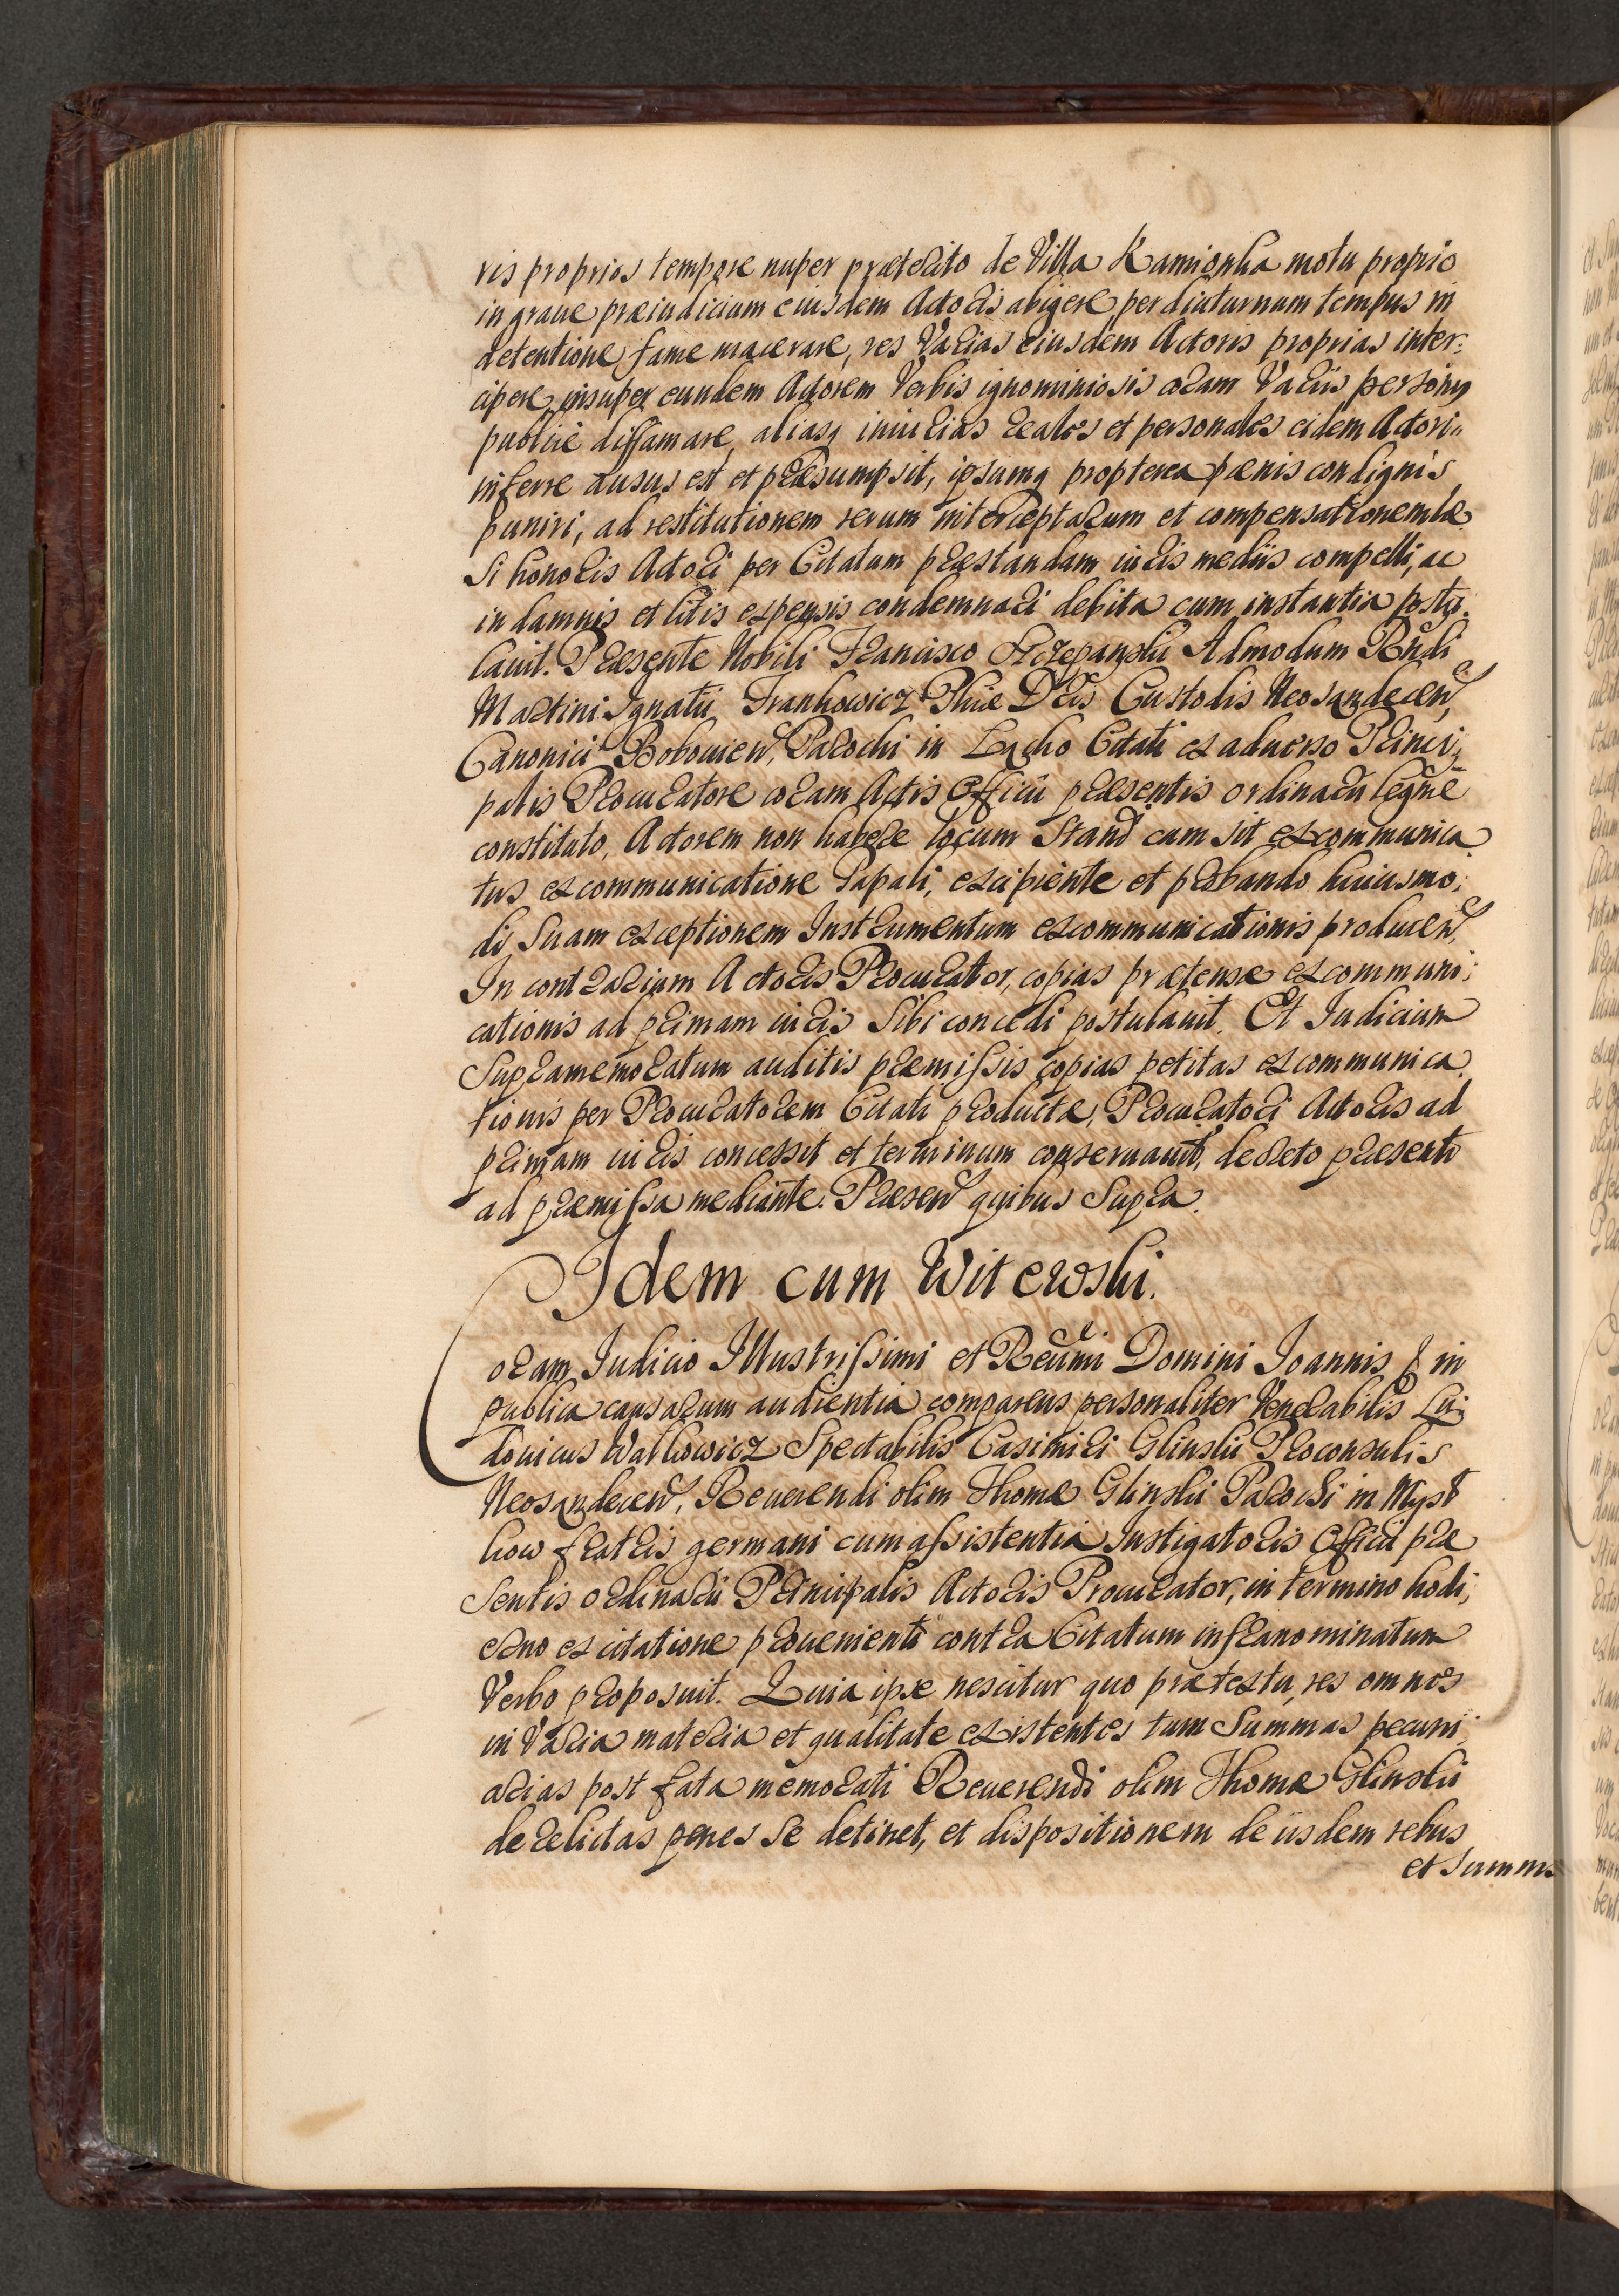 ris proprios tempore nuper præterito de Villa Kamionka motu proprio
in graue præiudicium eiusdem Actoris abigere, per diuturnum tempus in
detentione fame macerare, res Varias eiusdem Actoris proprias inter=
cipere, insuper eundem Actorem Verbis ignominiosis coram Varijs personis
publicè diffamare, aliasq iniurias reales et personales eidem Actori"
inferre ausus est et præsumpsit, ipsumq propterea pænis condignis
puniri, ad restitutionem rerum interceptarum et compensationem læ
si honoris Actori per Citatum præstandam iuris mediis compelli, ac
in damnis et litis expensis condemnari debita cum instantia postu.
lauit. Præsente Nobili Francisco Szczepanski Admodum Rndi
Martini Ignatii Frankowicz Phiæ Dris Custodis Neosandecen,
Canonici Bobouien, Parochi in Łącko Citati ex aduerso Princi,
palis Procuratore coram Actis Officii præsentis ordinarii legnè
constituto, Actorem non habere locum Standi cum sit excommunica
tus excommunicatione Papali, excipiente et probando huiusmo,
di Suam exceptionem Instrumentum excommunicationis producen,
In contrarium Actoris Procurator, copias prætensæ excommuni,
cationis ad primam iuris Sibi concedi postulauit. Et Iudicium
Supramemoratum auditis præmissis copias petitas excommunica,
tionis per Procuratorem Citati productæ, Procuratori Actoris ad
primam iuris concessit et terminum conseruauit, decreto præsenti
ad præmissa mediante. Præsen quibus Supra.
Idem cum Witewski.
Coram Iudicio Illustrissimi et Reumi Domini Ioannis & in
publica causarum audientia comparens personaliter Venerabilis Lu,
douicus Walkowicz Spectabilis Casimiri Glinski Proconsulis
Neosandecen, Reuerendi olim Thomæ Glinski Parochi in Myst
kow fratris germani cum assistentia Instigatoris Officii præ
sentis ordinarii Principalis Actoris Procurator, in termino hodi,
erno ex citatione proueniente contra Citatum infranominatum
Verbo proposuit. Quia ipse nescitur quo prætextu, res omnes
in Varia materia et qualitate existentes tum Summas pecuni,
arias post fata memorati Reuerendi olim Thomæ Glinski
derelictas penes se detinet, et dispositionem de iisdem rebus
et Summis